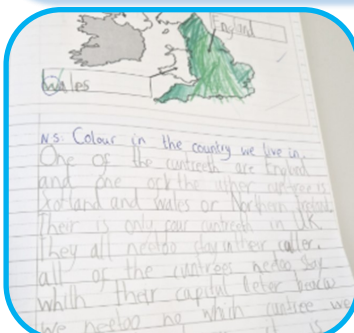 England
Wales
N.S. Colour in the country we live in.
One of the cuntreeth are England
and one of the uther cuntree is
Scotland and wales or Northern Ireland
Their is only four cuntreeth in UK
They all neetoo stay in their culler.
all of the cuntrees netoo stay
which their capital leter because
We neetoo no which cuntree we